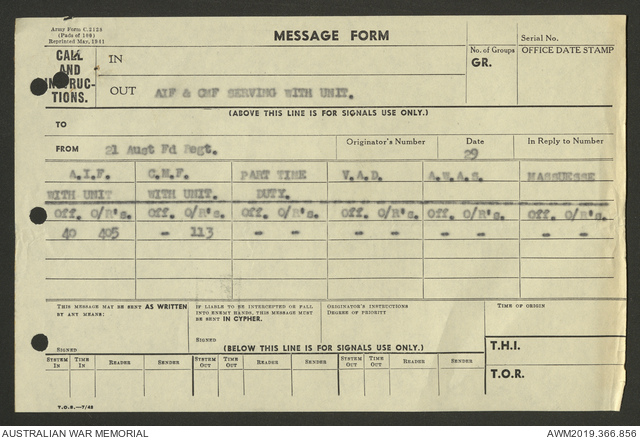 Army Form C.2128
(Pads of 100)
Reprinted May, 1941
MESSAGE FORM
Serial No.
CALL AND INSTRUC-TIONS.
IN
No. of Groups
GR.
OFFICE DATE STAMP
OUT AIF & CMF SERVING WITH UNIT.
(ABOVE THIS LINE IS FOR SIGNALS USE ONLY.)
TO
FROM 21 Aust Fd Regt.
Originator's Number
Date
29
In Reply to Number
A.I.F. C.M.F. PART TIME V.A.D. A.W.A.S. MASSUESSE
WITH UNIT WITH UNIT. DUTY.
Off. O/R's. Off. O/R's. Off. O/R's. Off. O/R's. Off. O/R's. Off. O/R's.
40 405 - 113 - - - - - - - -
THIS MESSAGE MAY BE SENT AS WRITTEN
BY ANY MEANS:
IF LIABLE TO BE INTERCEPTED OR FALL
INTO ENEMY HANDS, THIS MESSAGE MUST
BE SENT IN CYPHER.
ORIGINATOR'S INSTRUCTIONS
DEGREE OF PRIORITY
TIME OF ORIGIN
SIGNED
SIGNED
(BELOW THIS LINE IS FOR SIGNALS USE ONLY.)
T.H.I.
SYSTEM IN TIME IN READER SENDER SYSTEM OUT TIME OUT READER SENDER SYSTEM OUT TIME OUT READER SENDER
T.O.R.
T.O.S.—7/42
AUSTRALIAN WAR MEMORIAL
AWM2019.366.856